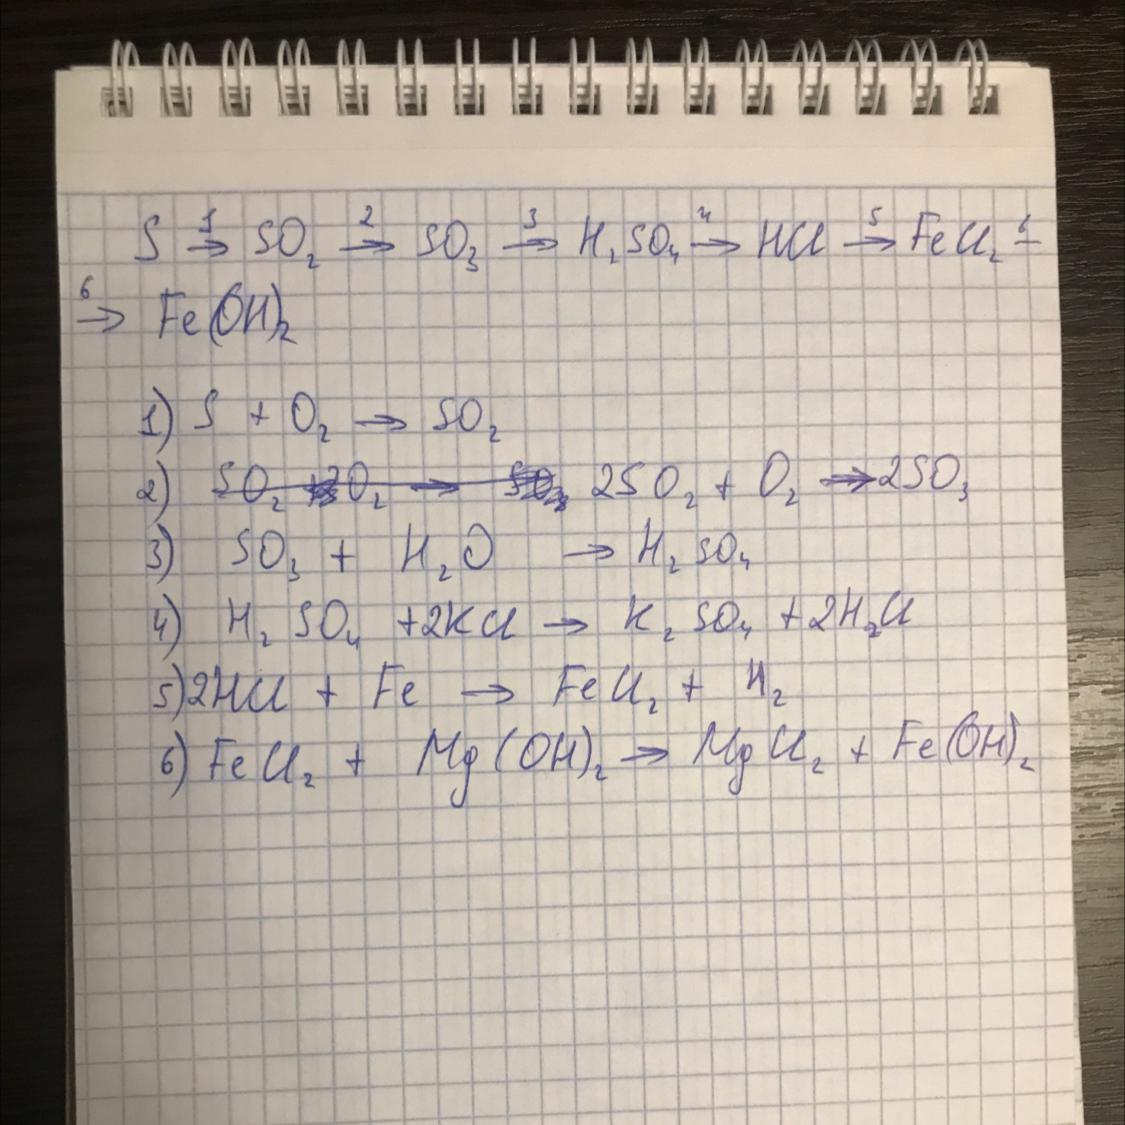 S →¹ SO₂ →² SO₃ →³ H₂SO₄ →⁴ HCl →⁵ FeCl₂ –⁶
→⁶ Fe(OH)₂
1) S + O₂ → SO₂
2) 2SO₂ + O₂ → 2SO₃
3) SO₃ + H₂O → H₂SO₄
4) H₂SO₄ + 2KCl → K₂SO₄ + 2H₂Cl
5) 2HCl + Fe → FeCl₂ + H₂
6) FeCl₂ + Mg(OH)₂ → MgCl₂ + Fe(OH)₂